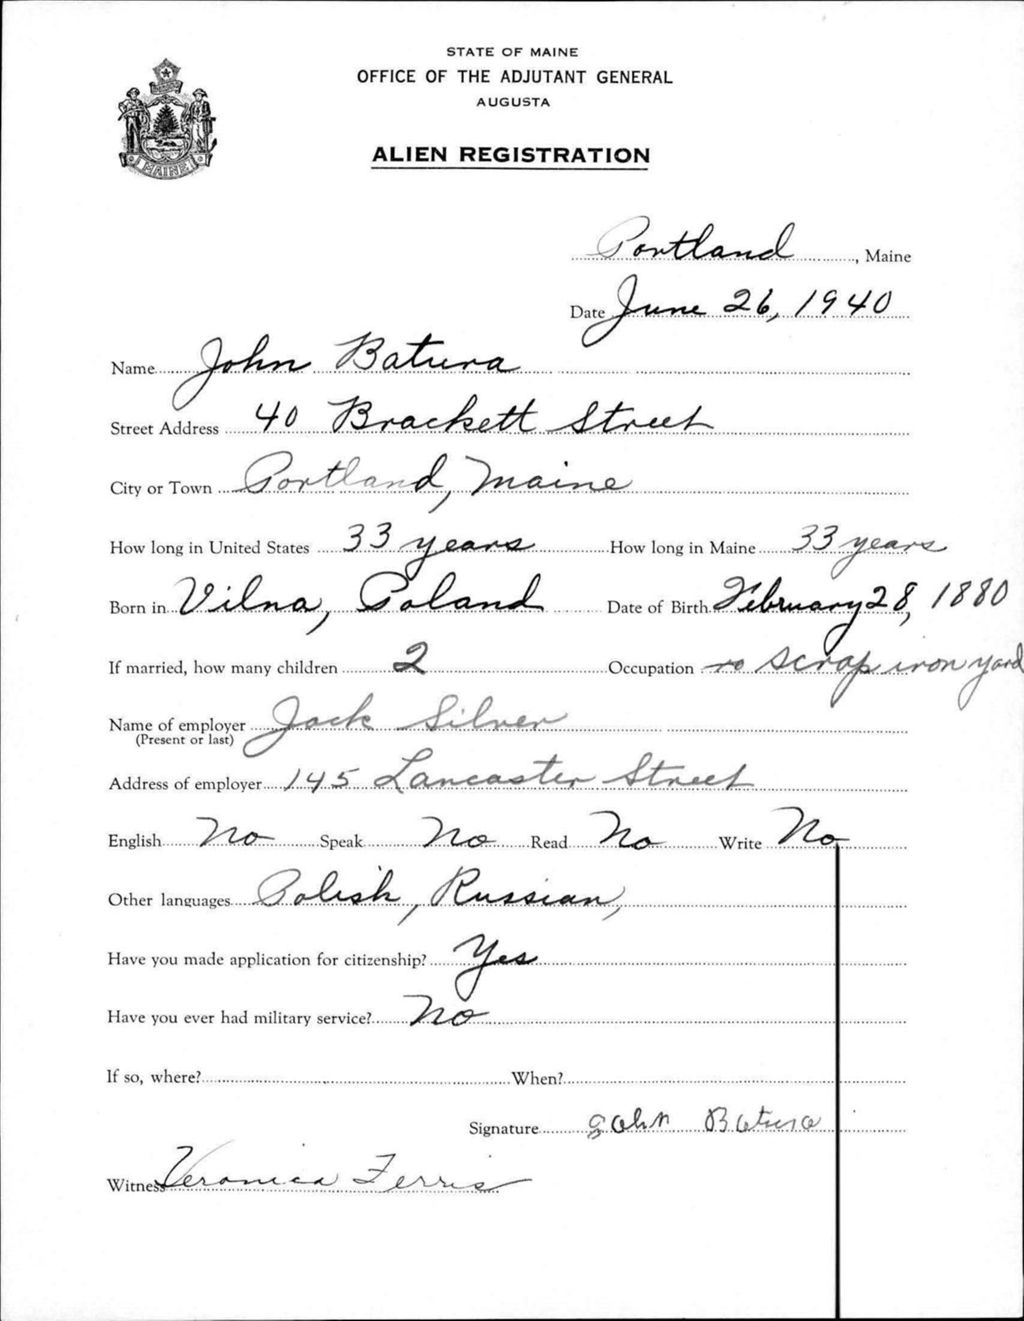 STATE OF MAINE
OFFICE OF THE ADJUTANT GENERAL
AUGUSTA
ALIEN REGISTRATION
MAINE
Portland, Maine
Date June 26, 1940
Name John Batura
Street Address 40 Brackett Street
City or Town Portland, Maine
How long in United States 33 years How long in Maine 33 years
Born in Vilna, Poland Date of Birth February 28, 1880
If married, how many children 2 Occupation scrap iron yard
Name of employer Jack Silver
(Present or last)
Address of employer 145 Lancaster Street
English No Speak No Read No Write No
Other languages Polish, Russian,
Have you made application for citizenship? Yes
Have you ever had military service? No
If so, where? When?
Signature John Batura
Witness Veronica Ferris